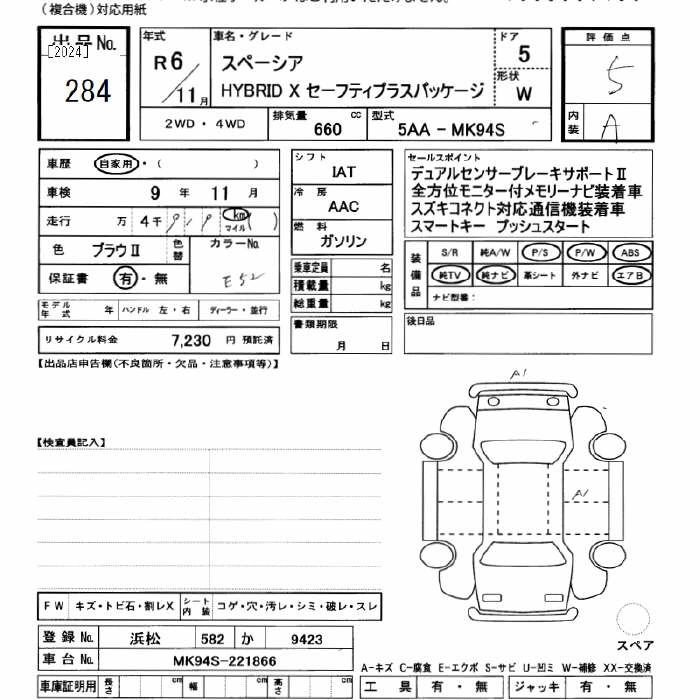 (複合機)対応用紙
出品No.
[2024]
284
年式
R6
11月
車名・グレード
スペーシア
HYBRID X セーフティプラスパッケージ
ドア
5
形状
W
評価点
5
内装
A
2WD・4WD
排気量
660
cc
型式
5AA - MK94S
車歴
自家用・(
)
車検
9 年 11 月
走行
万 4千 9 1 9 km マイル ( )
色
ブラウⅡ
色替
カラーNo.
E52
保証書
有・無
モデル年式
年
ハンドル 左・右
ディーラー・並行
リサイクル料金
7,230 円 預託済
シフト
IAT
冷房
AAC
燃料
ガソリン
乗車定員
名
積載量
kg
総重量
kg
書類期限
月 日
セールスポイント
デュアルセンサーブレーキサポートⅡ
全方位モニター付メモリーナビ装着車
スズキコネクト対応通信機装着車
スマートキー プッシュスタート
装備品
S/R 純A/W P/S P/W ABS
純TV 純ナビ 革シート 外ナビ エアB
ナビ型番:
後日品
【出品店申告欄(不良箇所・欠品・注意事項等)】
A1
A1
【検査員記入】
FW キズ・トビ石・割レX
シート内装 コゲ・穴・汚レ・シミ・破レ・スレ
登録No. 浜松 582 か 9423
車台No. MK94S-221866
車庫証明用 長さ cm 幅 cm 高さ cm
スペア
A-キズ C-腐食 E-エクボ S-サビ U-凹ミ W-補修 XX-交換済
工具 有・無 ジャッキ 有・無